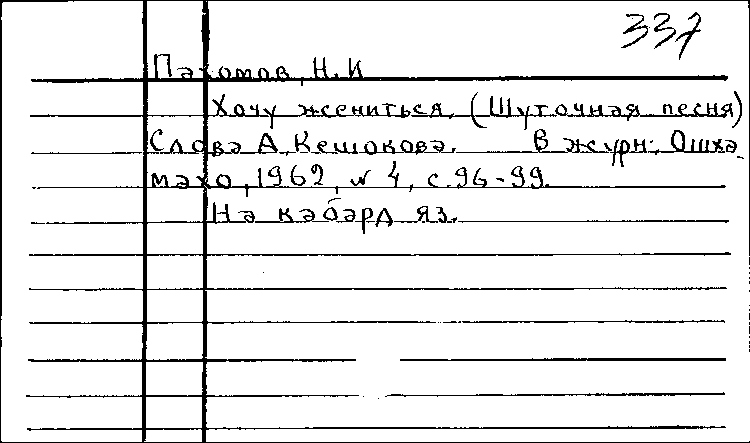 337
Пахомов, Н. И
Хочу жениться. (Шуточная песня)
Слова А. Кешокова. В журн.: Ошха-
махо, 1962, № 4, с. 96-99.
На кабард яз.